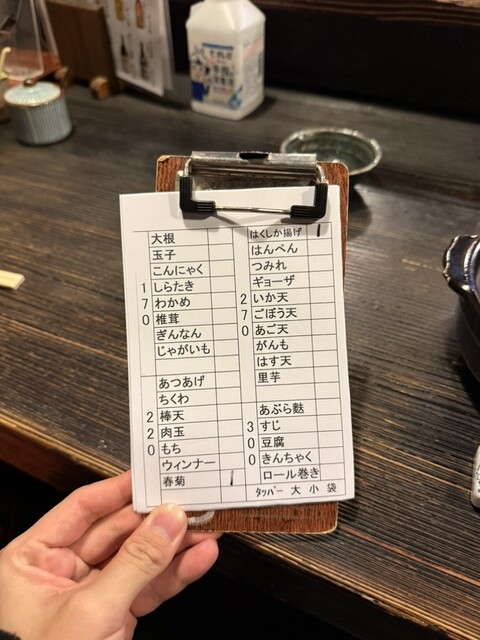 大根
玉子
こんにゃく
1 しらたき
7 わかめ
0 椎茸
ぎんなん
じゃがいも
あつあげ
ちくわ
2 棒天
2 肉玉
0 もち
ウィンナー
春菊 1
はくしか揚げ 1
はんぺん
つみれ
ギョーザ
2 いか天
7 ごぼう天
0 あご天
がんも
はす天
里芋
あぶら麩
3 すじ
0 豆腐
0 きんちゃく
ロール巻き
タッパー 大 小 袋